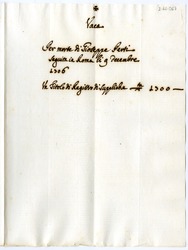 Vaca
Per morte di Giuseppe Perti
seguita in Roma li 9 decembre
1706
Un Titolo di Registro di Suppliche — 2300 —